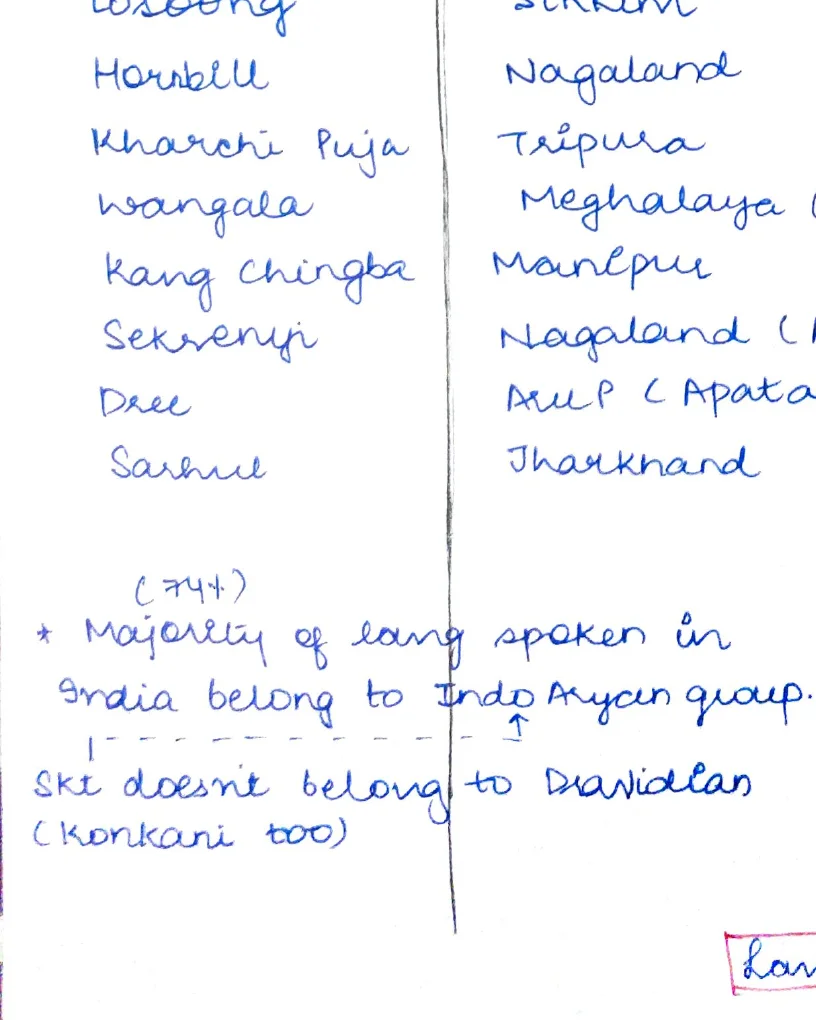 Losoong Sikkim
Hornbill Nagaland
Kharchi Puja Tripura
Wangala Meghalaya (
Kang Chingba Manipur
Sekrenyi Nagaland (
Dree Aru P ( Apata
Sarhul Jharkhand
(74%)
* Majority of lang spoken in
India belong to Indo Aryan group.
Skt doesn't belong to Dravidian
(Konkani too)
Lan